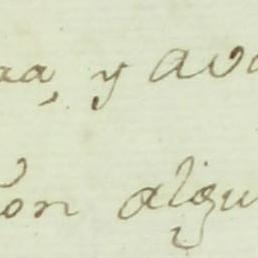 aa, y avo
on algu